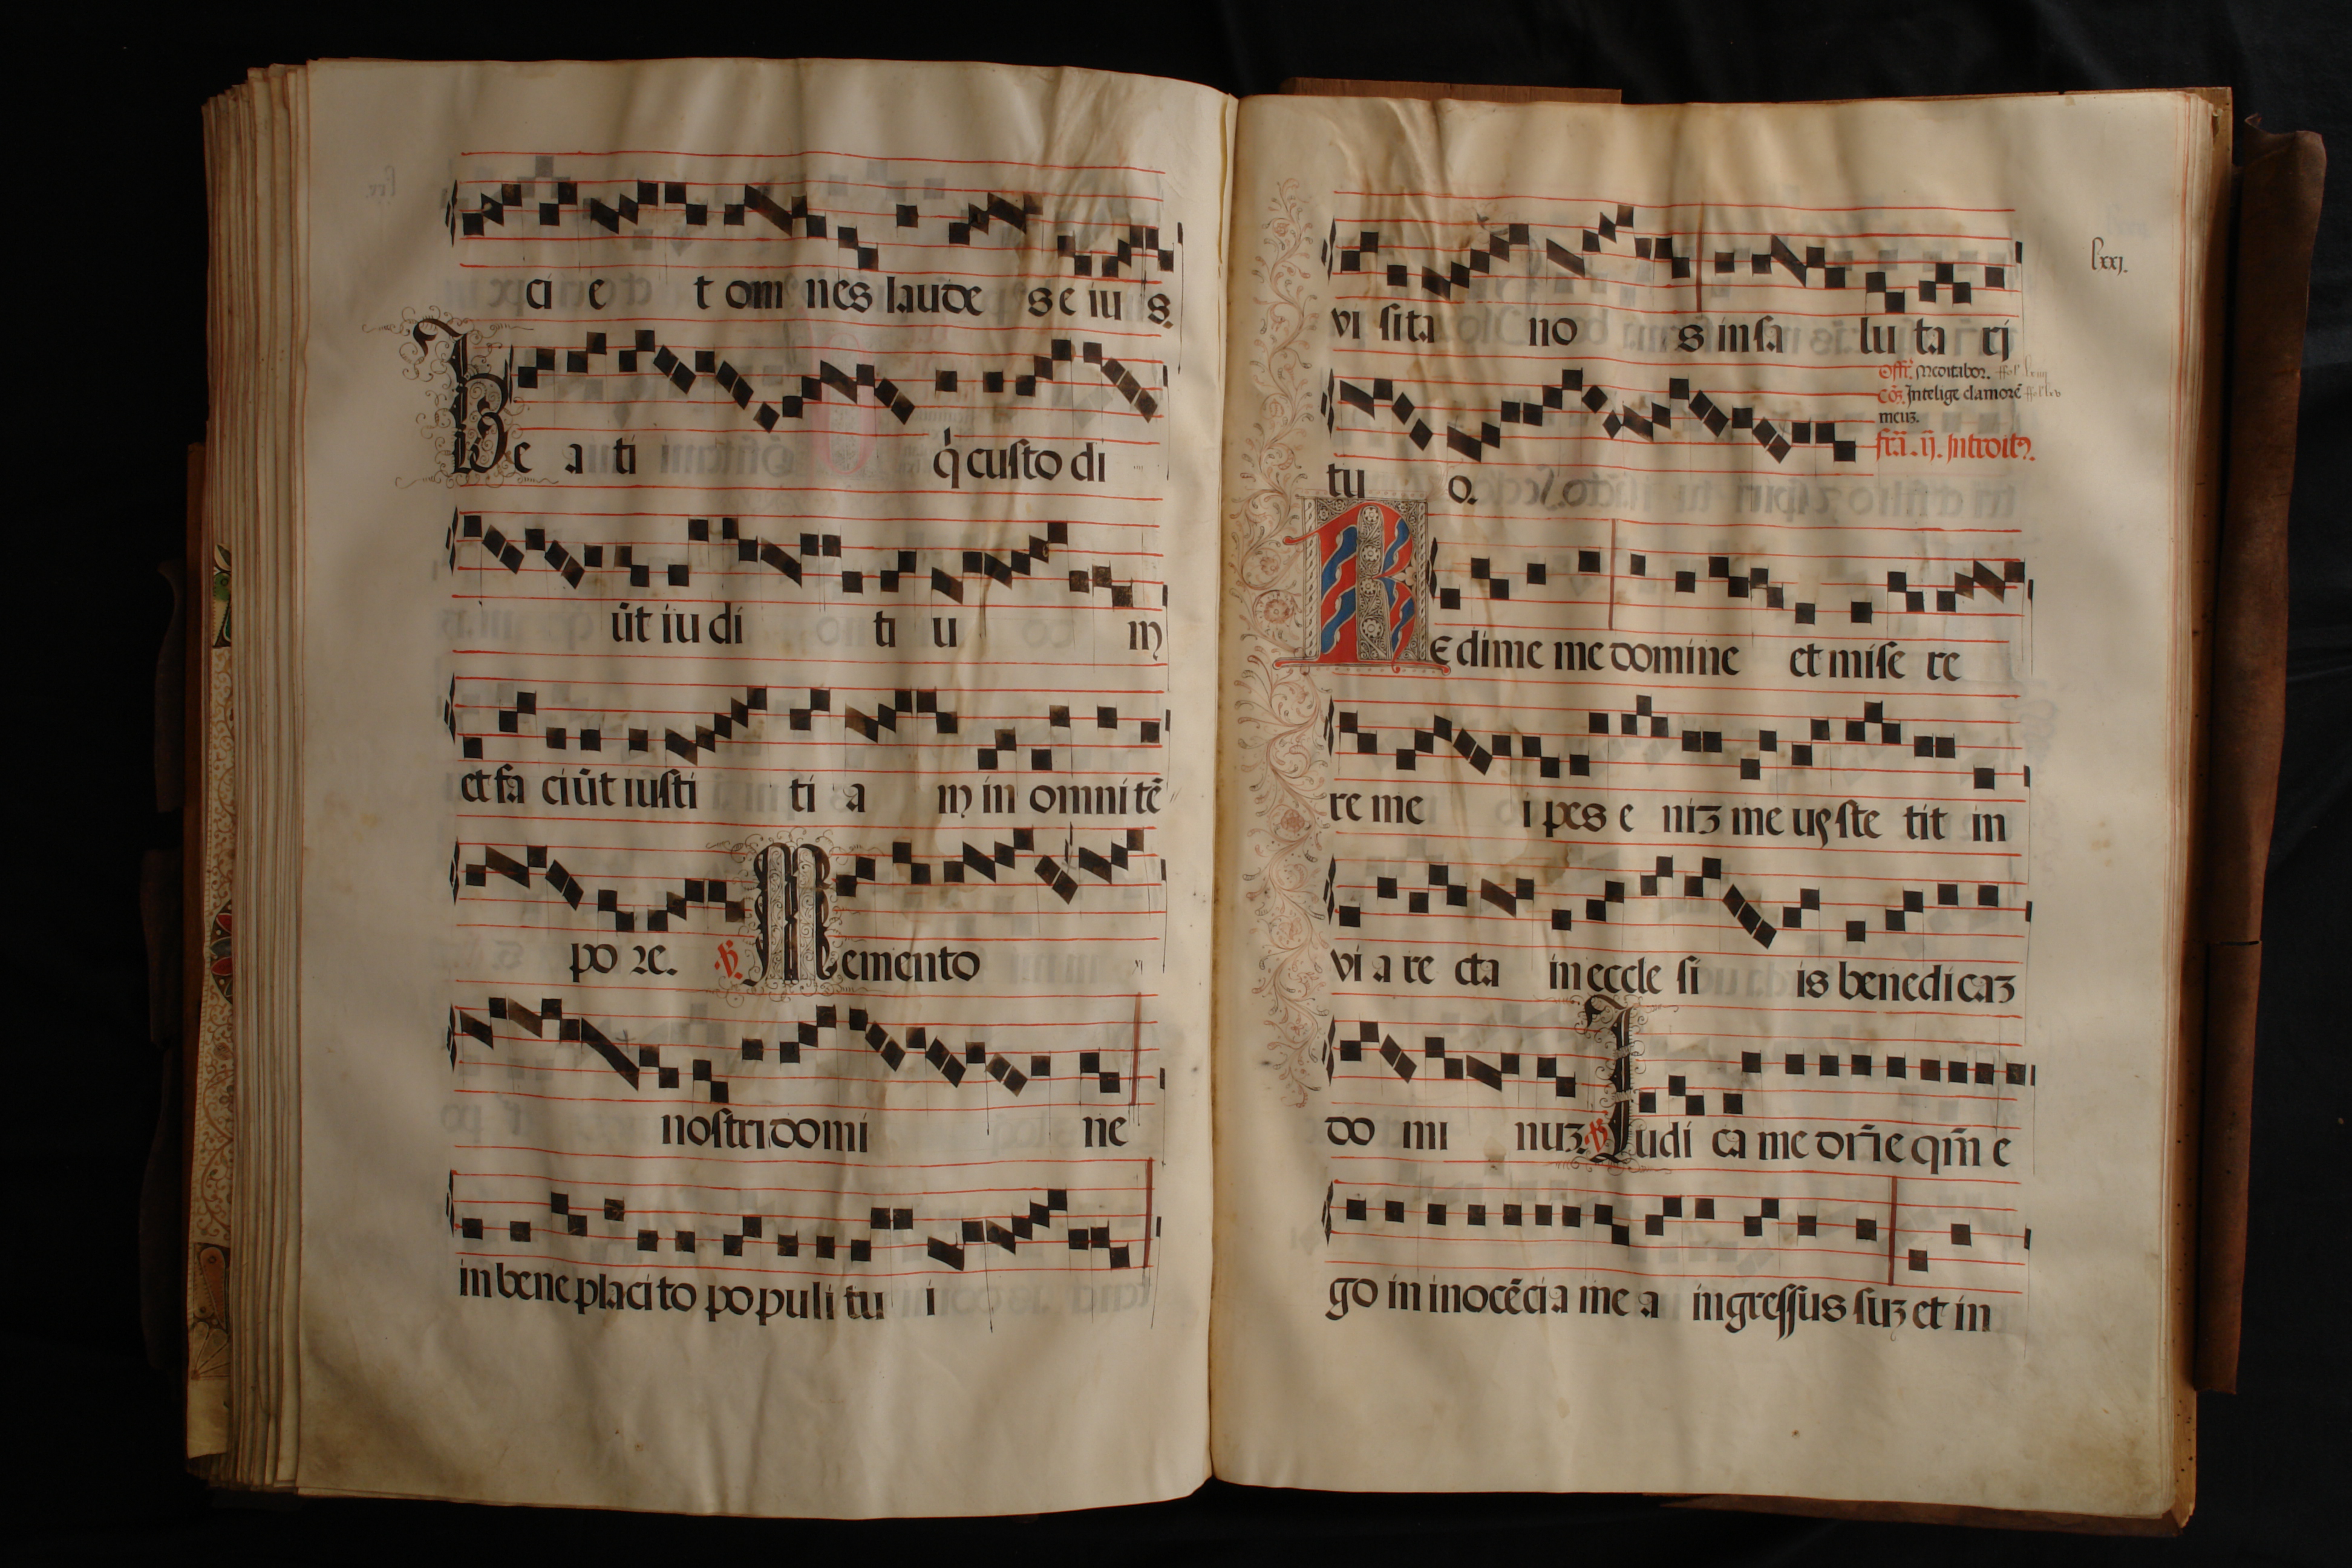 ci e t om nes laude s e iu s.
Be a ti q̇ custo di
ūt iu di ti u m
et fa ciūt iusti ti a m in omni tē
po re. ℣. Memento
nostri domi ne
in bene placi to po puli tu i
lxxj.
vi sita no s in sa lu ta rj
Offī. Meditabor.
Cō. Intelige clamorē
meuꝫ.
tu o.
fr̄a. ij. Introitꝰ.
Redime me domine et mise re
re me i pes e niꝫ me uꝰ ste tit in
vi a re cta in eccle si is benedicaꝫ
do mi nuꝫ. ℣. Iudi ca me dn̄e qm̄ e
go in inocēcia me a ingressus suꝫ et in